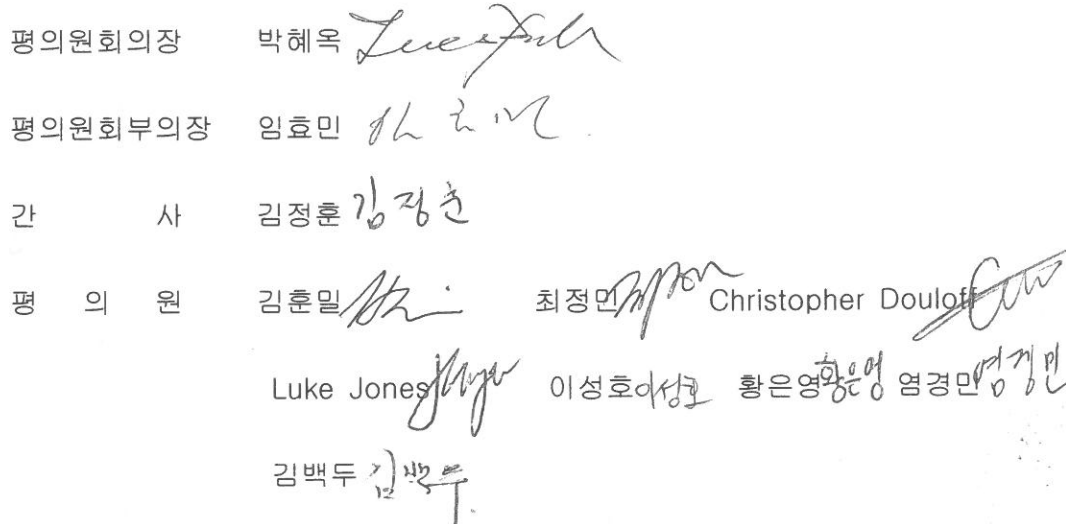 평의원회의장 박혜옥
평의원회부의장 임효민
간 사 김정훈 김정훈
평 의 원 김훈밀 최정민 Christopher Douloff
Luke Jones 이성호 이성호 황은영 황은영 염경민 염경민
김백두 김백두